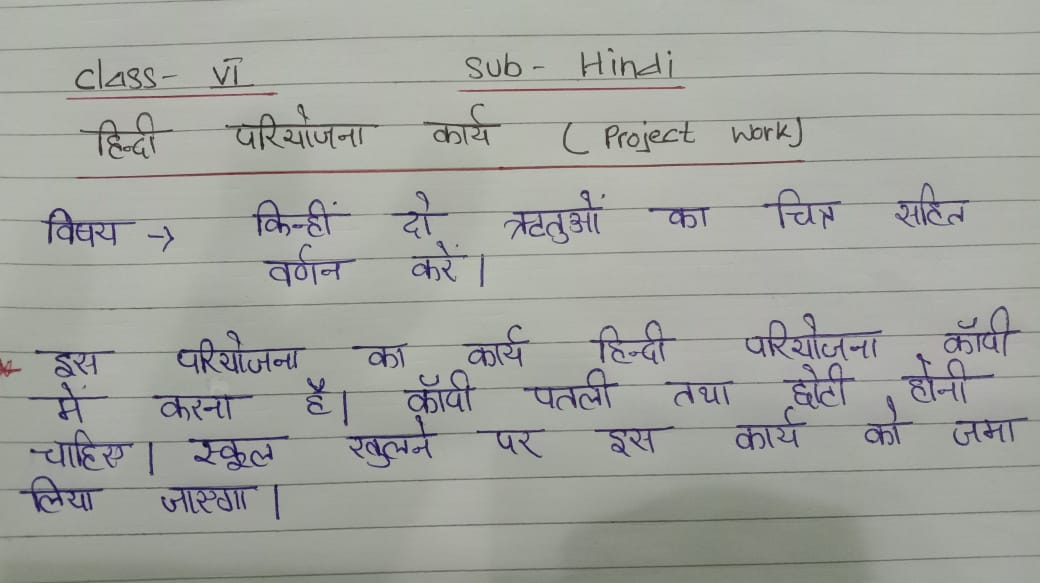 Class- VI Sub- Hindi
हिन्दी परियोजना कार्य (Project Work)
विषय → किन्हीं दो ऋतुओं का चित्र सहित
वर्णन करें।
* इस परियोजना का कार्य हिन्दी परियोजना कॉपी
में करना है। कॉपी पतली तथा छोटी होनी
चाहिए। स्कूल खुलने पर इस कार्य को जमा
लिया जाएगा।